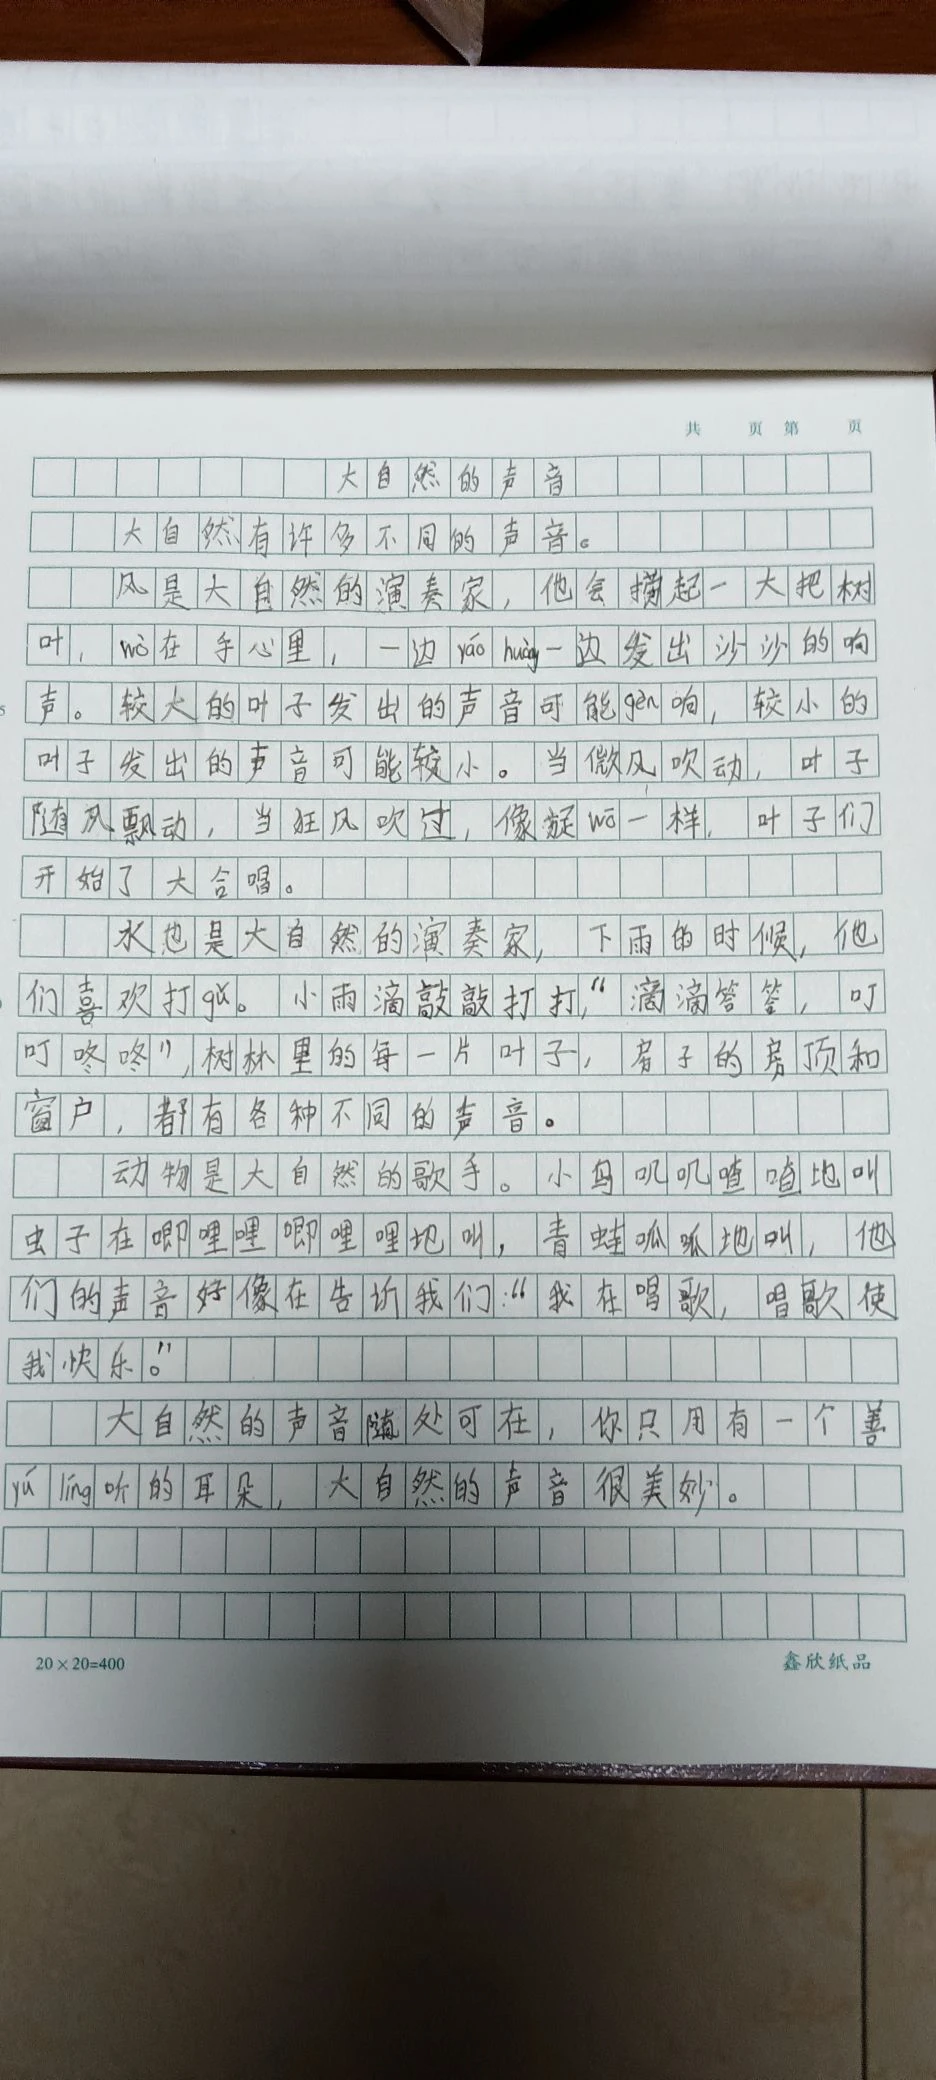 共 页 第 页
大自然的声音
大自然有许多不同的声音。
风是大自然的演奏家，他会起一大把树
叶，wò在手心里，一边yáo huàng一边发出沙沙的响
声。较大的叶子发出的声音可能gèn响，较小的
叶子发出的声音可能较小。当微风吹动，叶子
随风飘动，当狂风吹过，像旋wō一样，叶子们
开始了大合唱。
水也是大自然的演奏家，下雨的时候，他
们喜欢打gǔ。小雨滴敲敲打打，“滴滴答答，叮
叮咚咚”，树林里的每一片叶子，房子的房顶和
窗户，都有各种不同的声音。
动物是大自然的歌手。小鸟叽叽喳喳地叫
虫子在唧哩哩唧哩哩地叫，青蛙呱呱地叫，他
们的声音好像在告诉我们：“我在唱歌，唱歌使
我快乐。”
大自然的声音随处可在，你只用有一个善
yú líng听的耳朵，大自然的声音很美妙。
20×20=400 鑫欣纸品